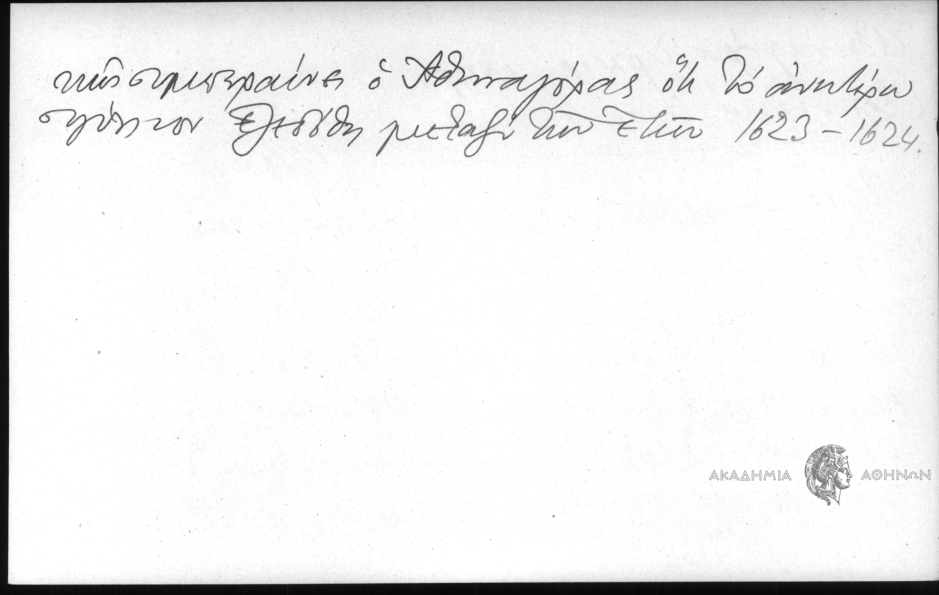 συμπεραίνει ὁ Ἀθηναγόρας ὅτι τὸ ἀνωτέρω
ἐξεδόθη μεταξὺ τῶν ἐτῶν 1623 – 1624.
ΑΚΑΔΗΜΙΑ ΑΘΗΝΩΝ